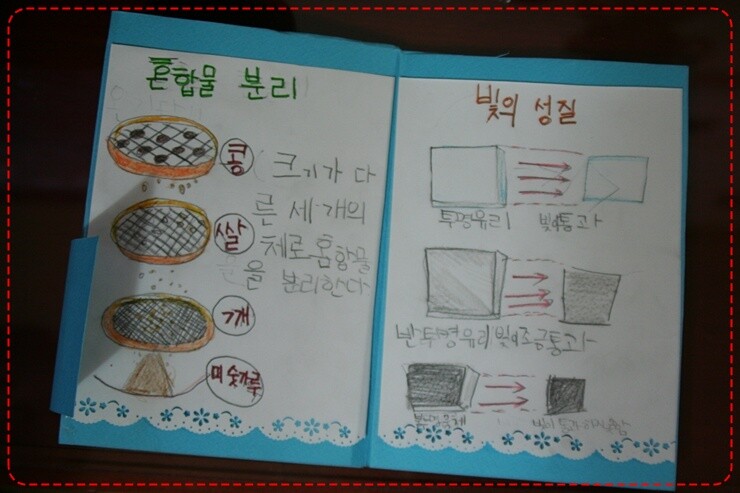 혼합물 분리
콩
크기가 다
른 세 개의
체로 혼합물
을 분리한다.
쌀
깨
미숫가루
빛의 성질
투명유리 빛이통과
반투명유리 빛이조금통과
불투명물체